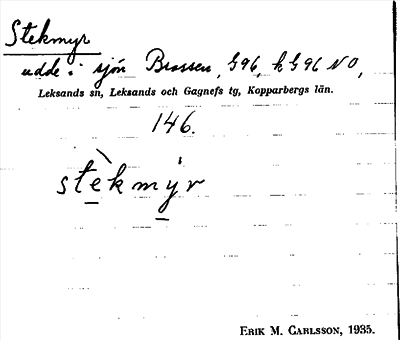 Stekmyr
udde i sjön Brossen, G96, k G96 NO,
Leksands sn, Leksands och Gagnefs tg, Kopparbergs län.
146.
stèkmýr
ERIK M. CARLSSON, 1935.